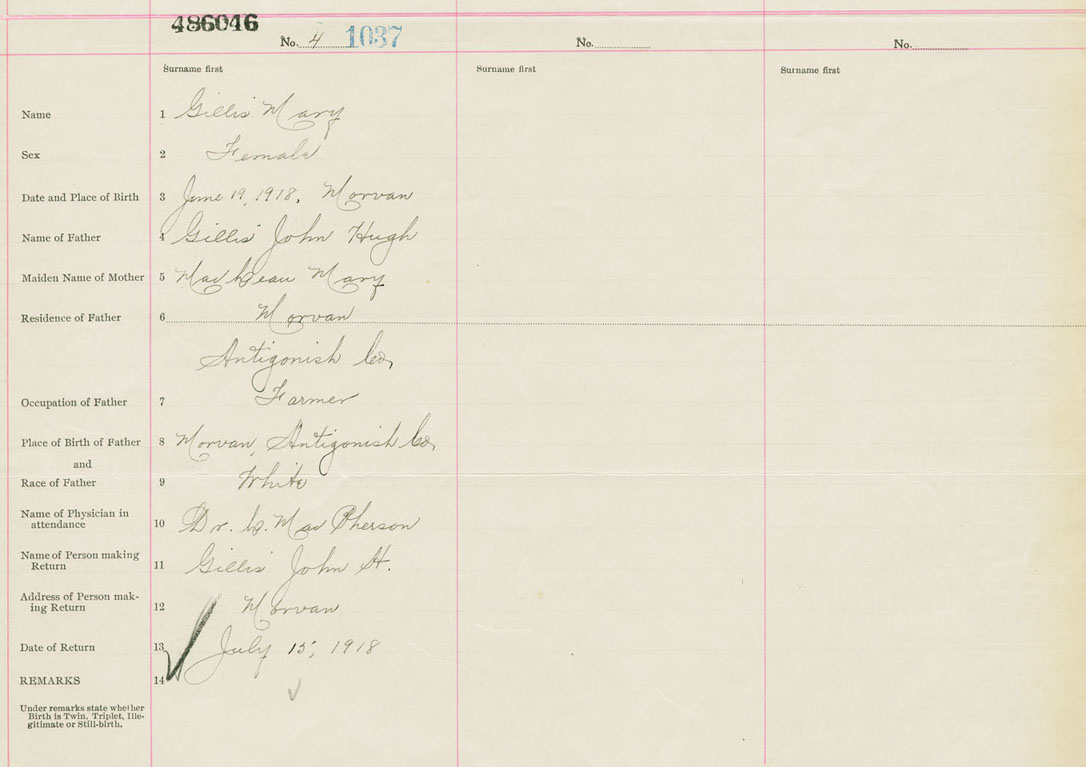 486046
No. 4 1037 No. No.
Surname first Surname first Surname first
Name 1 Gillis Mary
Sex 2 Female
Date and Place of Birth 3 June 19, 1918, Morvan
Name of Father 4 Gillis John Hugh
Maiden Name of Mother 5 Mary
Residence of Father 6 Morvan
Antigonish Co,
Occupation of Father 7 Farmer
Place of Birth of Father 8 Morvan, Antigonish Co,
and
Race of Father 9 White
Name of Physician in
attendance 10 Dr. Mac Pherson
Name of Person making
Return 11 Gillis John H.
Address of Person mak-
ing Return 12 Morvan
Date of Return 13 July 15, 1918
REMARKS 14
Under remarks state whether
Birth is Twin, Triplet, Ille-
gitimate or Still-birth.